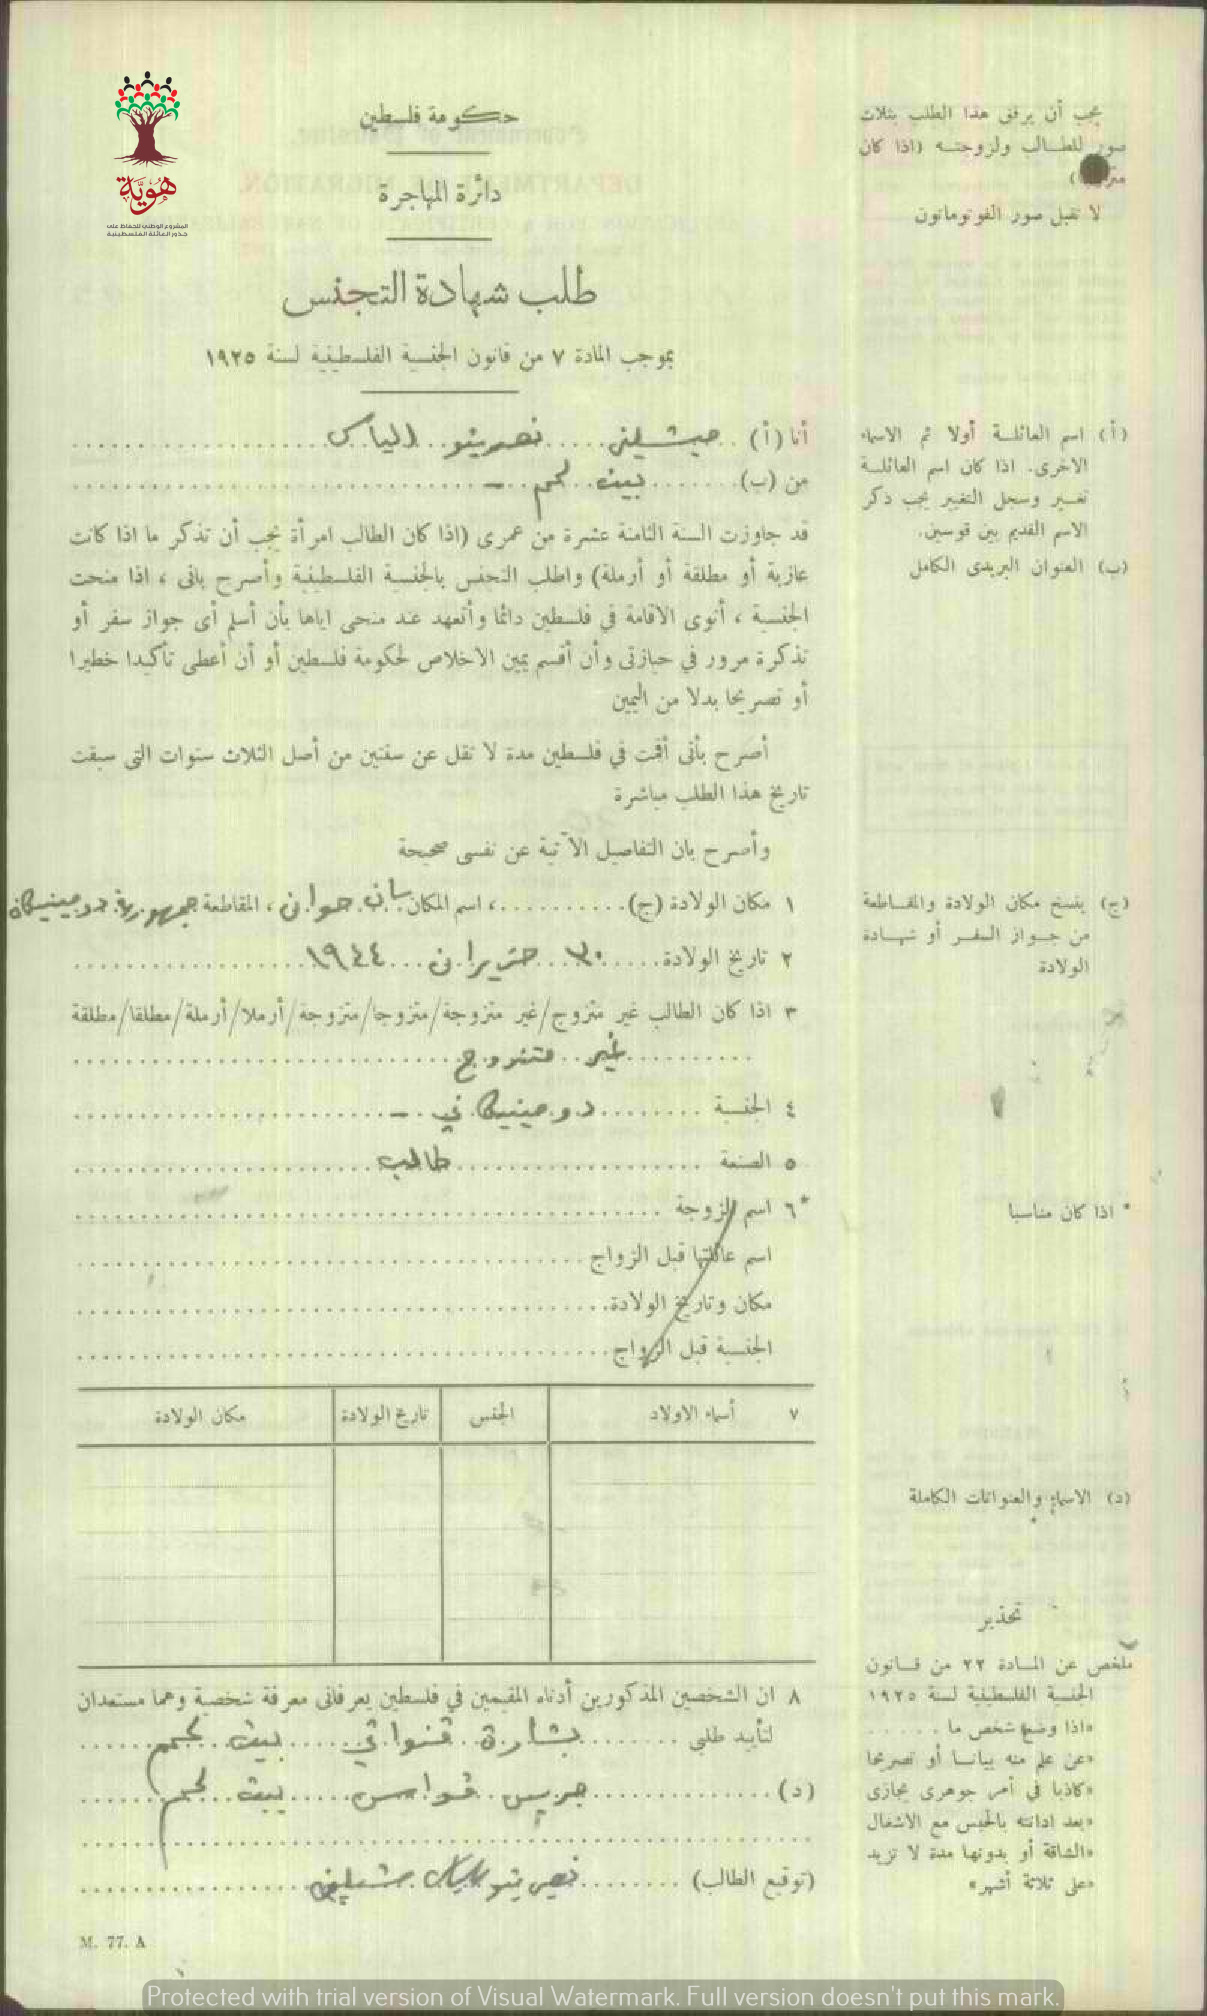 هويّة
المشروع الوطني للحفاظ على
جذور العائلة الفلسطينية
حكومة فلسطين
دائرة المهاجرة
طلب شهادة التجنس
بموجب المادة ٧ من قانون الجنسية الفلسطينية لسنة ١٩٢٥
يجب أن يرفق هذا الطلب بثلاث
صور للطالب ولزوجته (اذا كان
لا تقبل صور الفوتوماتون
أنا (أ) ميشليني نصرينو الياس
من (ب) بيت لحم -
قد جاوزت السنة الثامنة عشرة من عمرى (اذا كان الطالب امرأة يجب أن تذكر ما اذا كانت
عازبة أو مطلقة أو أرملة) واطلب التجنس بالجنسية الفلسطينية وأصرح بانى ، اذا منحت
الجنسية ، أنوى الاقامة في فلسطين دائما وأتعهد عند منحى اياها بأن أسلم أى جواز سفر أو
تذكرة مرور في حيازتى وأن أقسم يمين الاخلاص لحكومة فلسطين أو أن أعطى تأكيدا خطيرا
أو تصريحا بدلا من اليمين
أصرح بأنى أقمت في فلسطين مدة لا تقل عن سنتين من أصل الثلاث سنوات التى سبقت
تاريخ هذا الطلب مباشرة
وأصرح بان التفاصيل الآتية عن نفسى صحيحة
(أ) اسم العائلة أولا ثم الاسماء
الاخرى. اذا كان اسم العائلة
تغير وسجل التغيير يجب ذكر
الاسم القديم بين قوسين.
(ب) العنوان البريدى الكامل
١ مكان الولادة (ج) ، اسم المكان سان حوانى ، المقاطعة جمهورية دومينيكان
٢ تاريخ الولادة ٣٠ حزيرانى ١٩٤٤
٣ اذا كان الطالب غير متزوج/غير متزوجة/متزوجا/متزوجة/أرملا/أرملة/مطلقا/مطلقة
غير متزوج
٤ الجنسية دومينيكاني -
٥ الصنعة طالب
*٦ اسم الزوجة
اسم عائلتها قبل الزواج
مكان وتاريخ الولادة
الجنسية قبل الزواج
(ج) ينسخ مكان الولادة والمقاطعة
من جواز السفر أو شهادة
الولادة
* اذا كان مناسبا
٧ أسماء الاولاد الجنس تاريخ الولادة مكان الولادة
(د) الاسماء والعنوانات الكاملة
٨ ان الشخصين المذكورين أدناه المقيمين في فلسطين يعرفانى معرفة شخصية وهما مستعدان
لتأييد طلبى بشارة قنواتي بيت لحم
(د) جريس قواس بيت لحم
(توقيع الطالب) نصرينو الياس مشيليني
تحذير
ملخص عن المادة ٢٢ من قانون
الجنسية الفلسطينية لسنة ١٩٢٥
«اذا وضع شخص ما
«عن علم منه بيانا أو تصريحا
«كاذبا في أمر جوهرى يجازى
«بعد ادانته بالحبس مع الاشغال
«الشاقة أو بدونها مدة لا تزيد
«على ثلاثة أشهر»
M. 77. A
Protected with trial version of Visual Watermark. Full version doesn't put this mark.